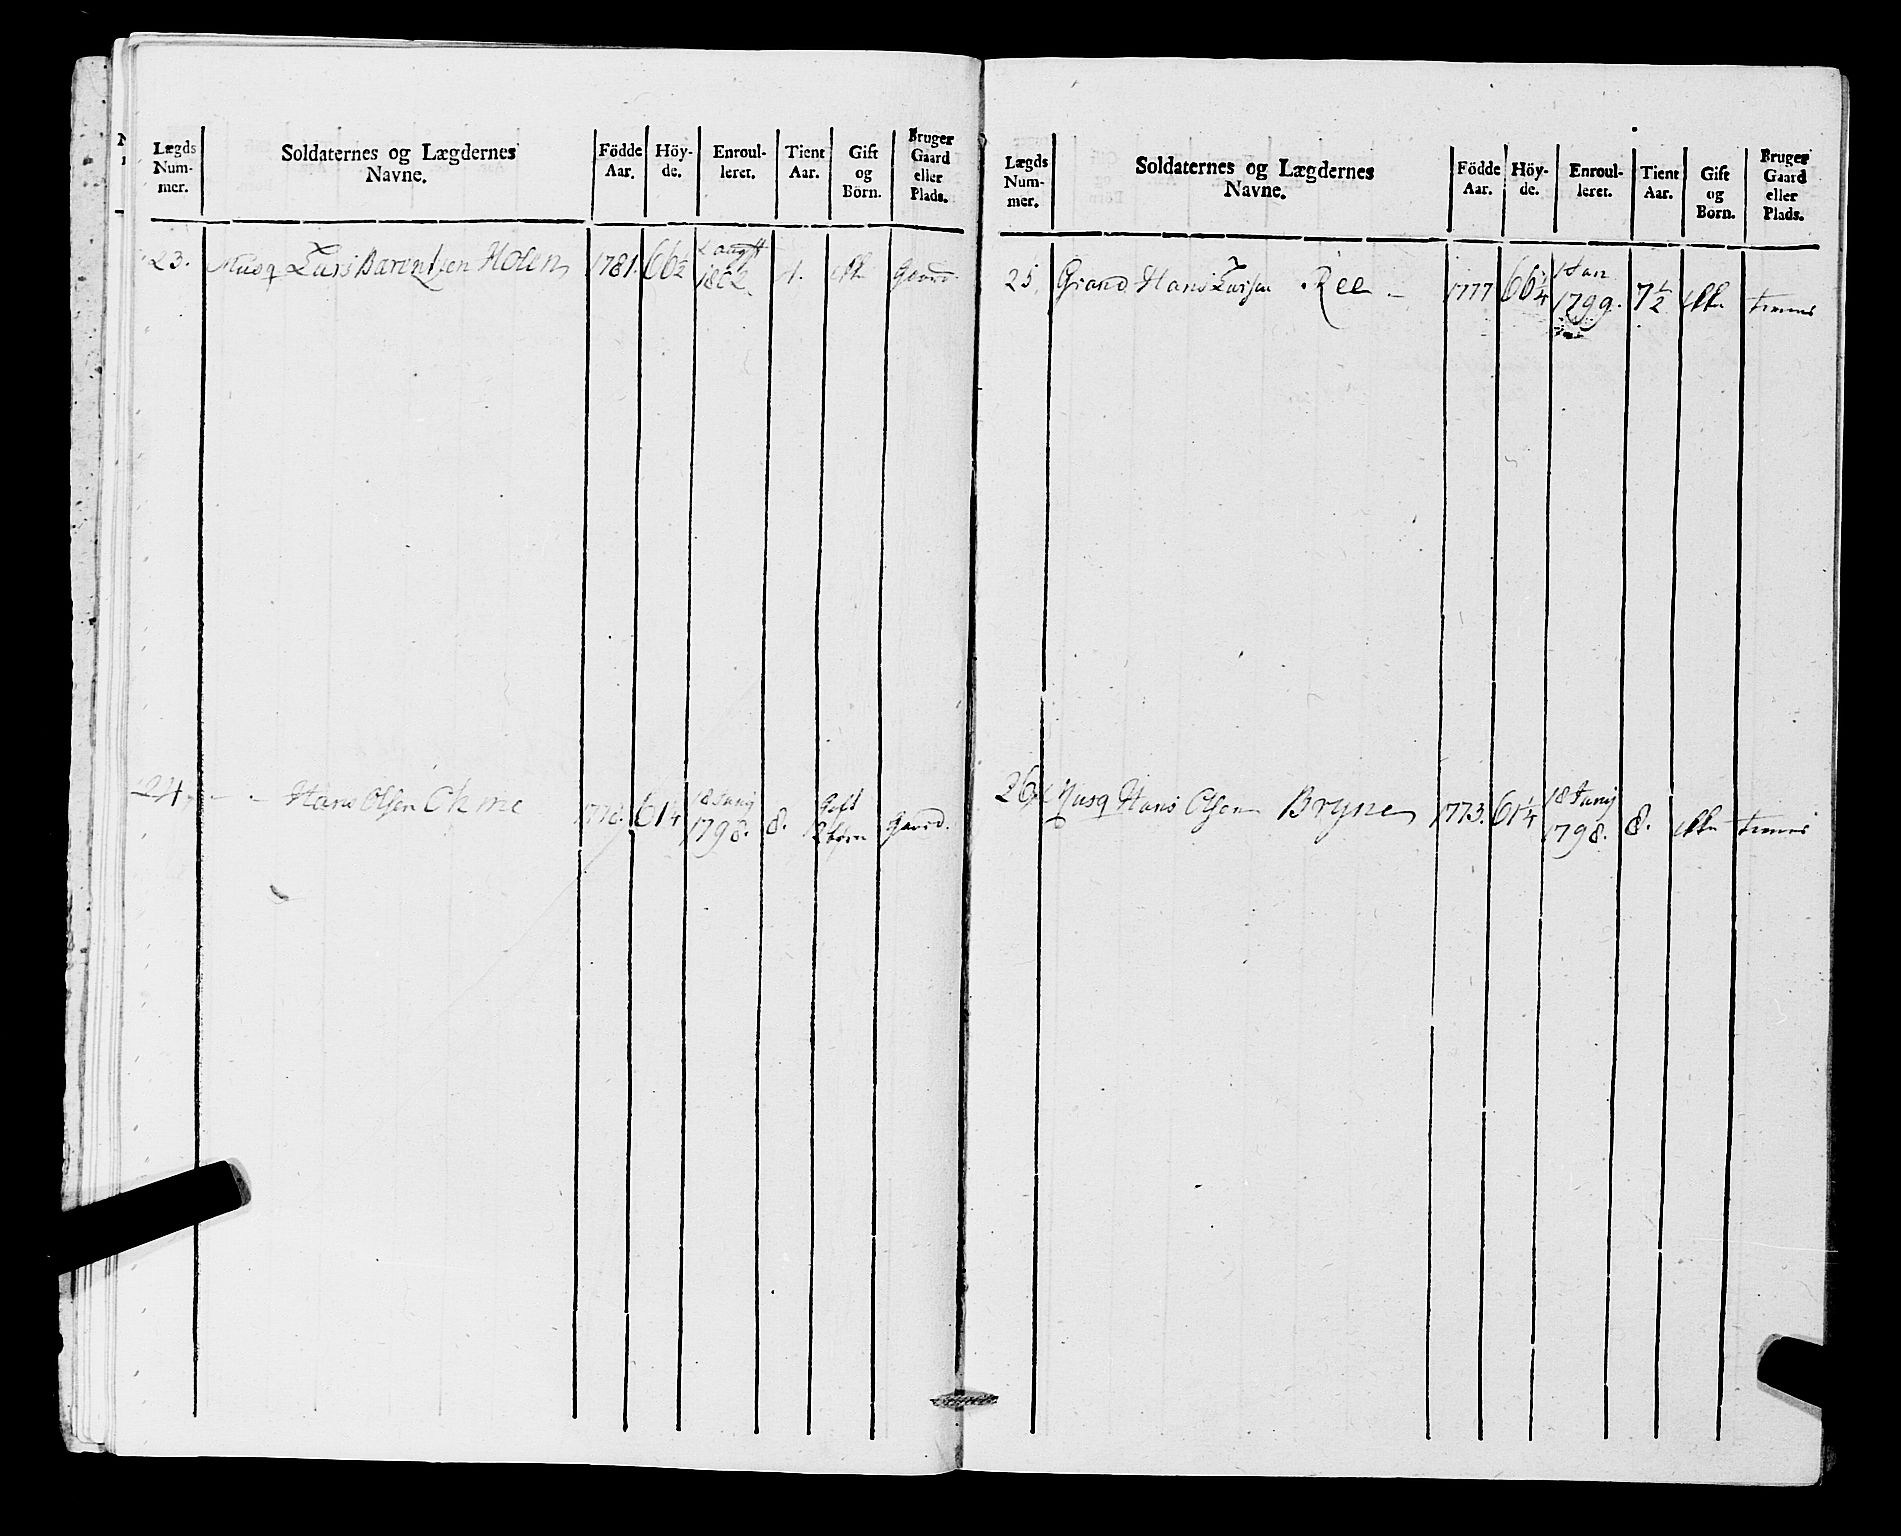 Lægds Num- mer.
Soldaternes og Lægdernes Navne.
Födde Aar.
Höy- de.
Enroul- leret.
Tient Aar.
Gift og Börn.
Bruger Gaard eller Plads.
23. Musq Lars Barentsen Holen 1781. 66 1/2 1802. 4. Gaard.
24. - - Hans Olsen 61 1/4 18 Junij 1798. 8. Gift 2 börn Gaard.
Lægds Num- mer.
Soldaternes og Lægdernes Navne.
Födde Aar.
Höy- de.
Enroul- leret.
Tient Aar.
Gift og Börn.
Bruger Gaard eller Plads.
25. Grand. Hans Larsen Ree - 1777 66 1/4 1 Jan 1799. 7 1/2 ikke tienner
26. Musq Hans Olsen Bryne 1773. 61 1/4 18 Junij 1798. 8. ikke tienner